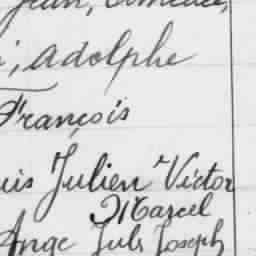 Jean,
, Adolphe
François
uis Julien Victor
Marcel
Ange Jules Joseph